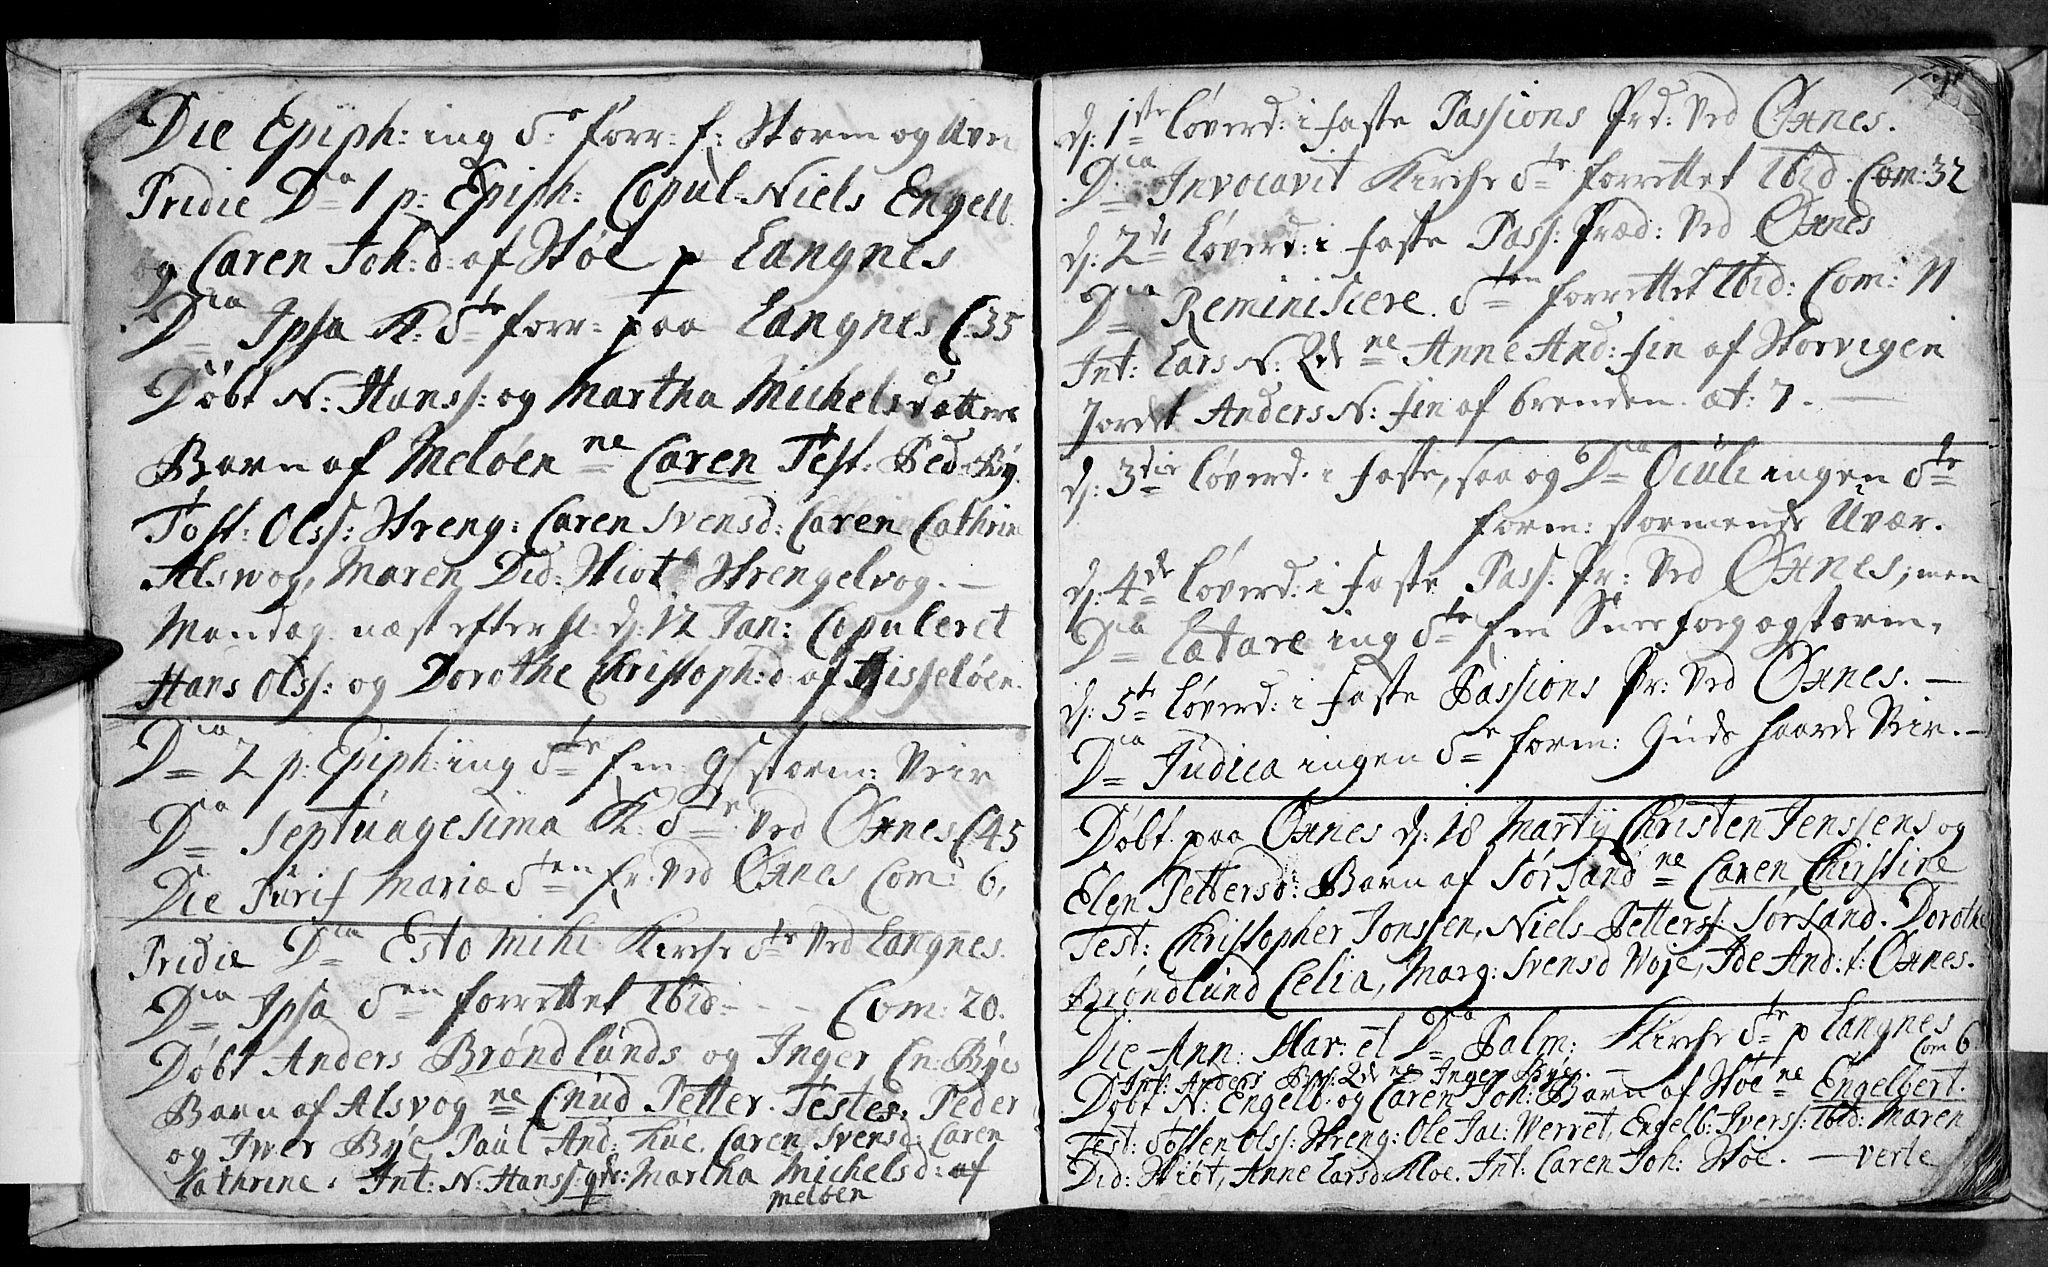 Die Epiph: ing S:e forr: f: Storm og Uvei
Pridie D:a 1 p: Epiph: Copul: Niels Engelb.
og Caren Joh:d: af Støe p Langnes
D:ca Ipsa K: S:te forr: paa Langnes C:35
Døbt N: Hanss: og Martha Michelsdatters
Barn af Meløen ne Caren Test: Ped: By.
Tost: Olss: Streng: Caren Svensd: Caren Cathrin
Alswog, Maren Did: Skiøt Strengelvog.
Mandag næst efter d: 12 Jan: Copuleret
Hans Olss: og Dorothe Christoph:d: af Tisseløen.
D:ca 2 p: Epiph: ing S:te f: m: storm: Veir
D:ca Septuagesima K: S:te ved Øxnes C 45
Die Purif Mariæ S:ten fr: ved Øxnes Com: 6,
Pridie D:ca Esto Mihi Kirche S:te ved Langnes.
D:ca Ipsa S:en forrettet Ibid: - - - Com: 20.
Døbt Anders Brøndlunds og Inger Cn: Byes
Barn af Alsvog ne Cnud Petter. Testes: Peder
og Iver Bye, Paul And: Kue. Caren Svensd: Caren
Kathrine. Int: N: Hanss: qv: Martha Michelsd: af
Meløen
d: 1ste Løverd: i faste Passions Prd: ved Øxnes.
D:ca Invocavit Kirche S:te forrettet Ibid. Com: 32
d: 2de Løverd: i faste Pass: Præd: ved Øxnes
D:ca Reminiscere. S:ten forrettet Ibid: Com: 11
Int: Lars N: Qv: ne Anne And: fin af Storvigen
Jordet Anders N: fin af brenden. æt: 7.
d: 3die Løverd: i faste, saa og D:ca Oculi ingen S:te
form: stormende Uvær.
d: 4de Løverd: i faste Pass: Pr: ved Øxnes; men
D:ca Lætare ing S:te f: m Snee fog og storm,
d: 5te Løverd: i faste Passions Pr: ved Øxnes.
D:ca Judica ingen S:e form: Guds haarde Veir.
Døbt paa Øxnes d: 18 Martij Christen Jenssens og
Elen Pettersd: Barn af Sørsand ne Caren Chirstine
Test: Christopher Jonssen, Niels Petterss: Sørsand. Dorothe
Brøndlund Celia, Marg: Svensd Woje, Ide And: f: Øxnes.
Die Ann: Mar: et D:a Palm: Kirche S:te p Langnes
Com 6.
Int: Anders Br: 2d ne Inger Bye.
Døbt N: Engelb: og Caren Joh: Barn af Støe ne Engelbert.
Test: Tosten Olss: Streng: Ole Jac: Werret, Engelb: Iverss: Ibid: Maren
Did: Skiøt, Anne Larsd: Kloe. Int: Caren Joh: Støe. — verte